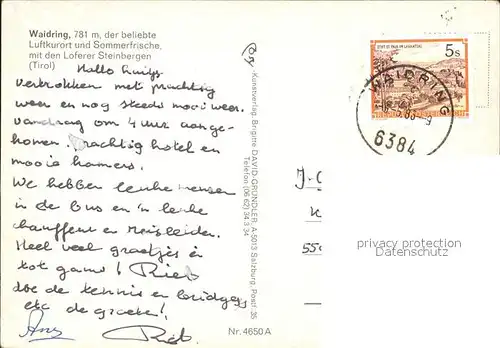 Waidring, 781 m, der beliebte
Luftkurort und Sommerfrische,
mit den Loferer Steinbergen
(Tirol)
Hallo
vertrokken met prachtig
weer en nog steeds mooi weer.
vandaag om 4 uur aange-
komen. Prachtig hotel en
mooie kamers.
We hebben leuke mensen
in de bus en 'n leuke
chauffeur en reisleider.
Heel veel groetjes en
tot gauw!
doe de tennis en bridgers
etc de groeten!
Nr. 4650 A
Kunstverlag, Brigitte DAVID-GRÜNDLER, A-5013 Salzburg, Postf. 35
Telefon (06 62) 34 3 34
STIFT ST. PAUL IM LAVANTTAL
5s
WAIDRING
6384
J-C
550
privacy protection
Datenschutz